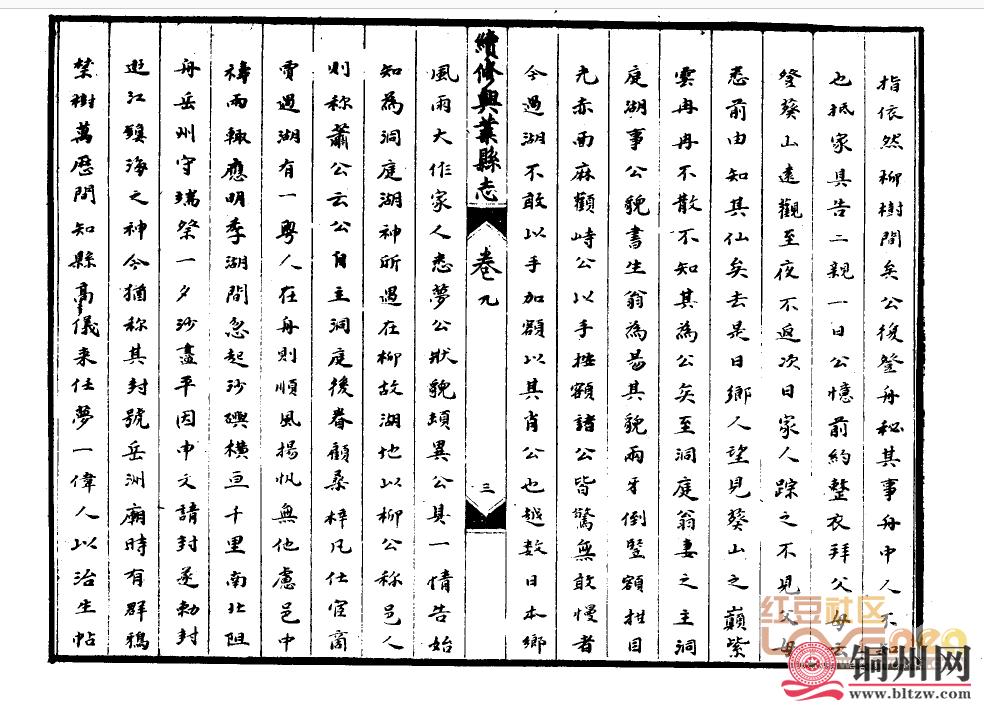 指依然柳樹間矣公後登舟秘其事舟中人不知
也抵家具告二親一日公憶前約整衣拜父母云
登葵山遠觀至夜不返次日家人踪之不見父母
悉前由知其仙矣去是日鄉人望見葵山之巔紫
雲冉冉不散不知其為公矣至洞庭翁妻之主洞
庭湖事公貌書生翁為易其貌兩牙倒豎額柑目
光赤面麻顴峙公以手捶額諸公皆驚無敢慢者
今過湖不敢以手加額以其肖公也越数日本鄉
續修興業縣志
卷九
三
風雨大作家人悉夢公狀貌頓異公具一情告始
知為洞庭湖神所遇在柳故湖地以柳公称邑人
则称蕭公云公自主洞庭後眷顧桑梓凡仕宦商
賈過湖有一粤人在舟則順風揚帆無他慮邑中
禱雨輙應明季湖間忽起沙磧橫亘千里南北阻
舟岳州守瑞祭一夕沙盡平因申文請封遂勅封
遊江鎮海之神今猶称其封號岳洲廟時有群鴉
禁樹萬歷間知縣高儀来任夢一偉人以治生帖
红豆社区
铜州网
www.bltzw.com